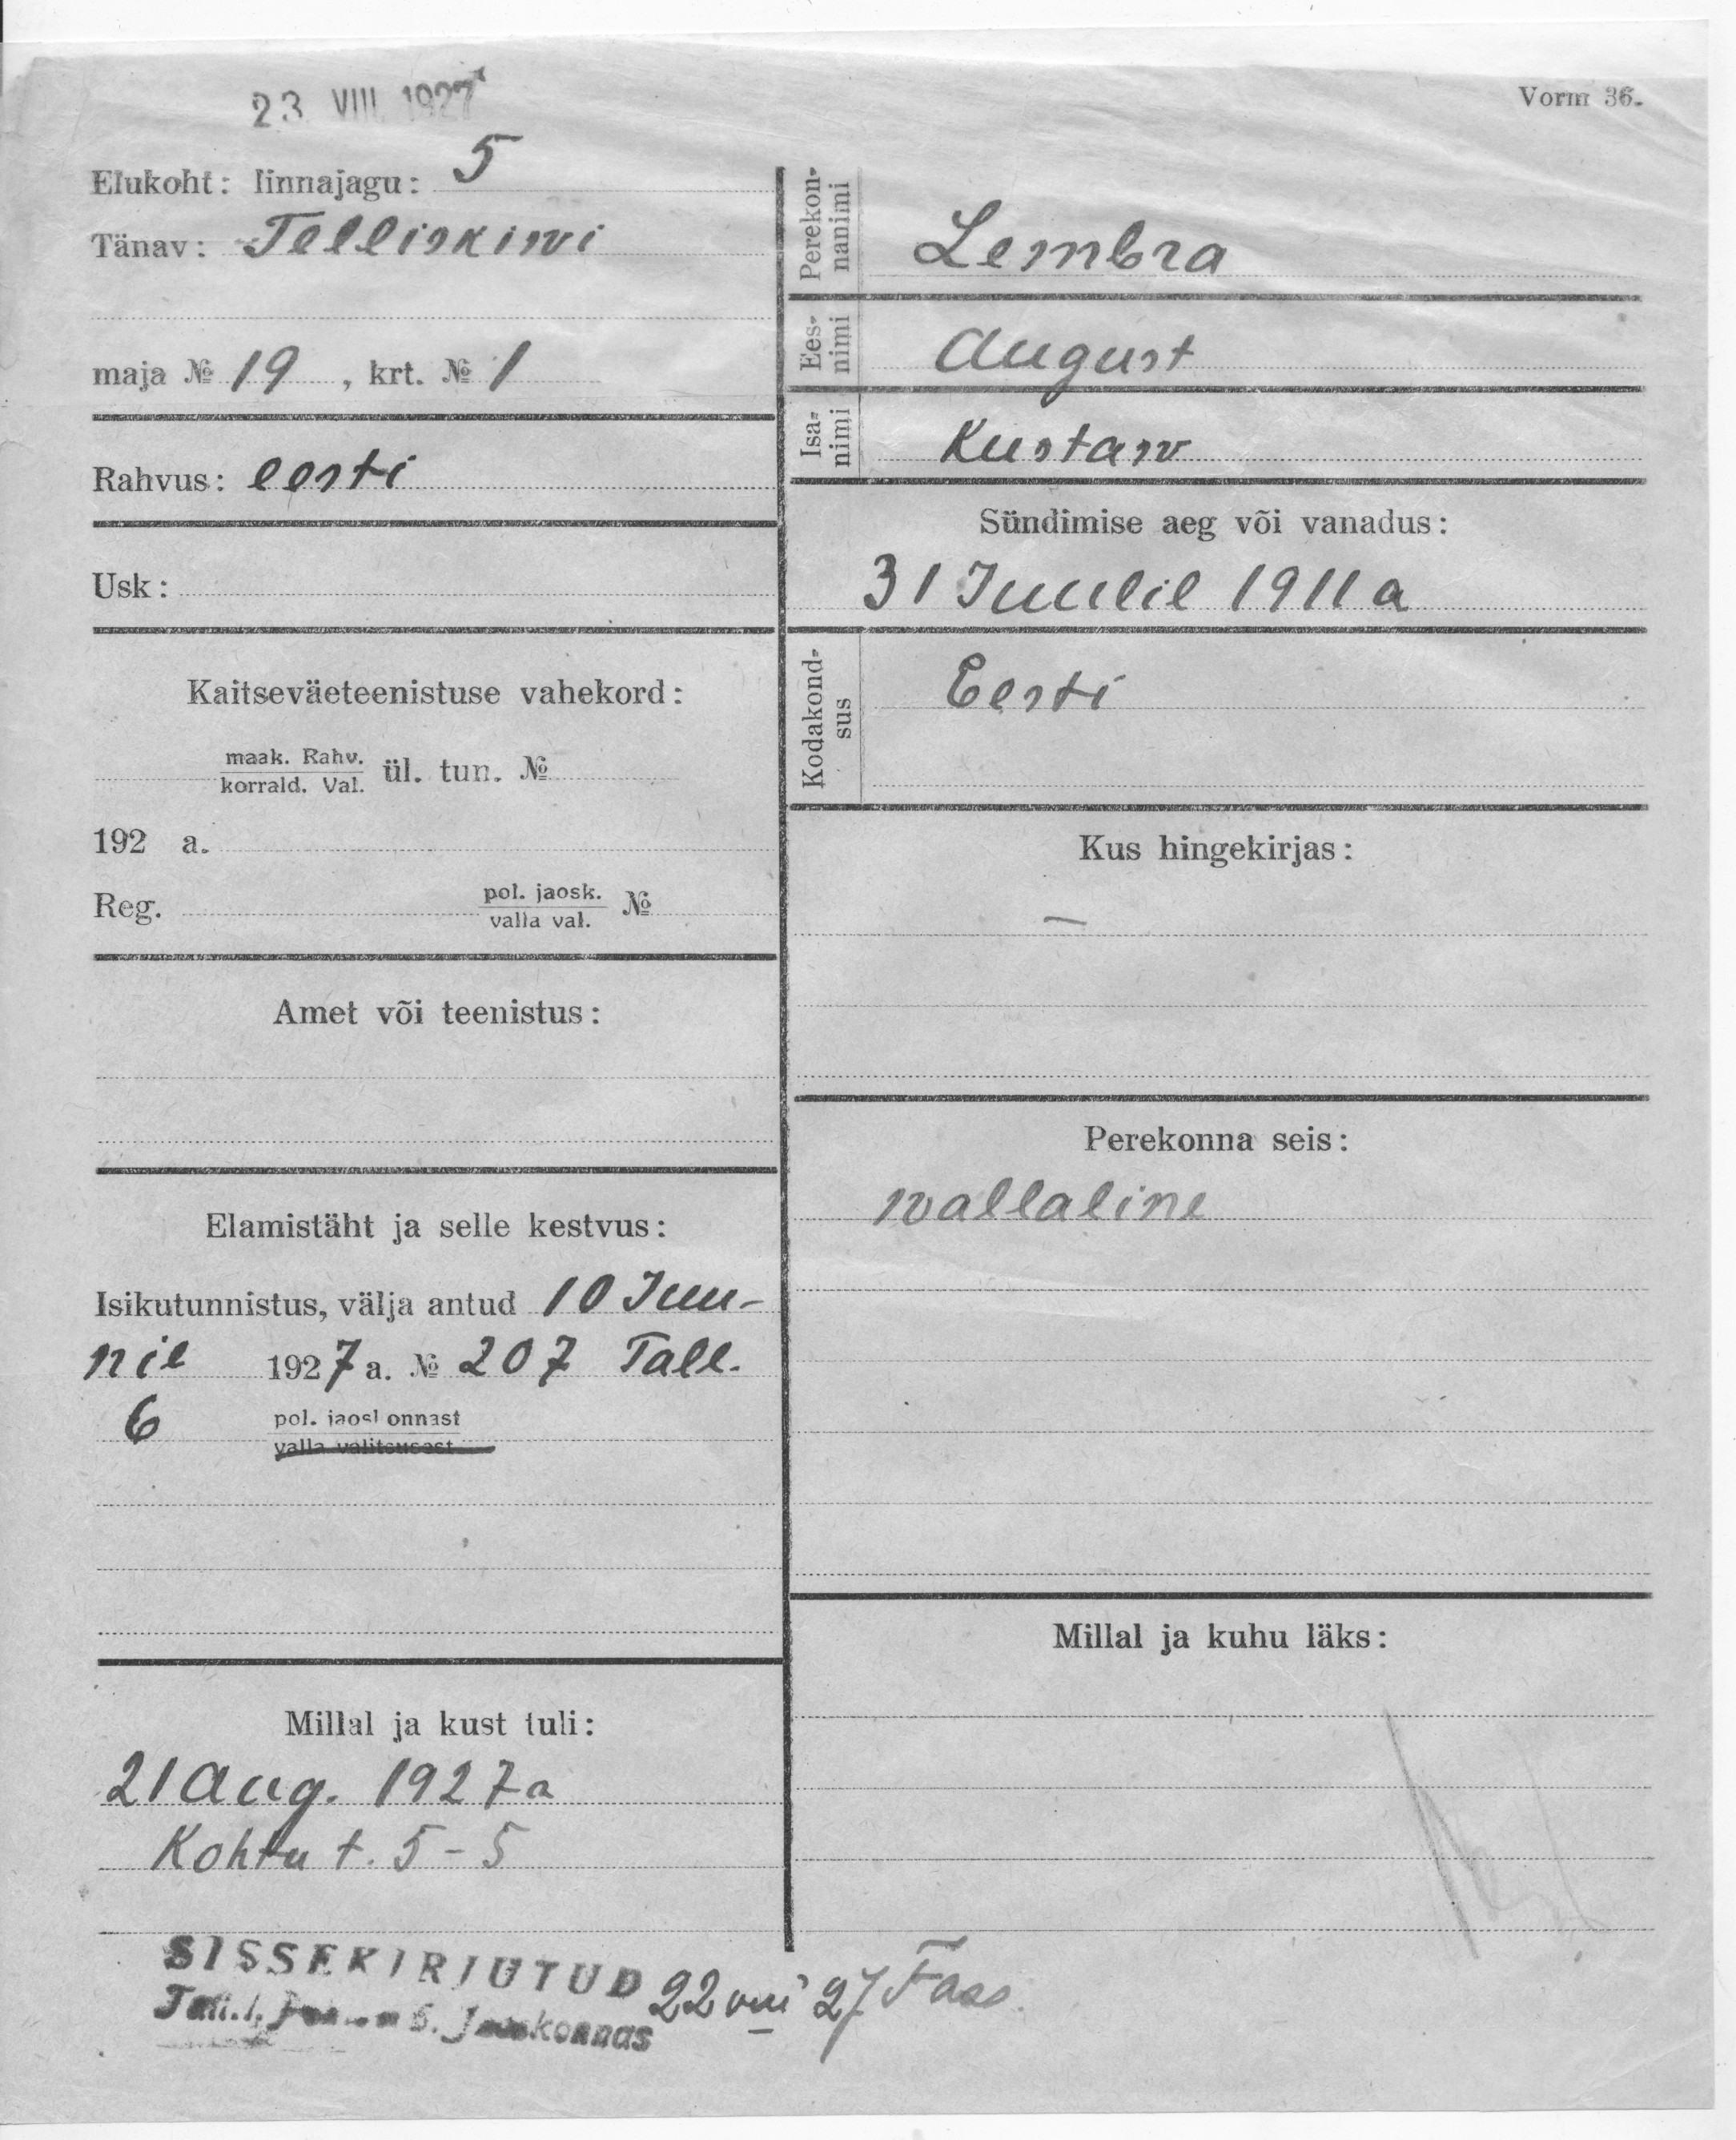 23 VIII 1927
Vorm 36.
Elukoht: linnajagu: 5
Tänav: Telliskiwi
maja № 19, krt. № 1
Rahvus: eesti
Usk:
Kaitseväeteenistuse vahekord:
maak. Rahv.
korrald. Val.
ül. tun. №
192 a.
Reg.
pol. jaosk.
valla val.
№
Amet või teenistus:
Elamistäht ja selle kestvus:
Isikutunnistus, välja antud 10 Juu-
nil 1927 a. № 207 Tall.
6 pol. jaoskonnast
valla valitsusest
Millal ja kust tuli:
21 Aug. 1927 a
Kohtu t. 5-5
Perekon-
nanimi
Lembra
Ees-
nimi
August
Isa-
nimi
Kustaw
Sündimise aeg või vanadus:
31 Juulil 1911 a
Kodakond-
sus
Eesti
Kus hingekirjas:
—
Perekonna seis:
wallaline
Millal ja kuhu läks:
SISSEKIRJUTUD 22 VIII 27 Faas.
5. Jaoskonnas